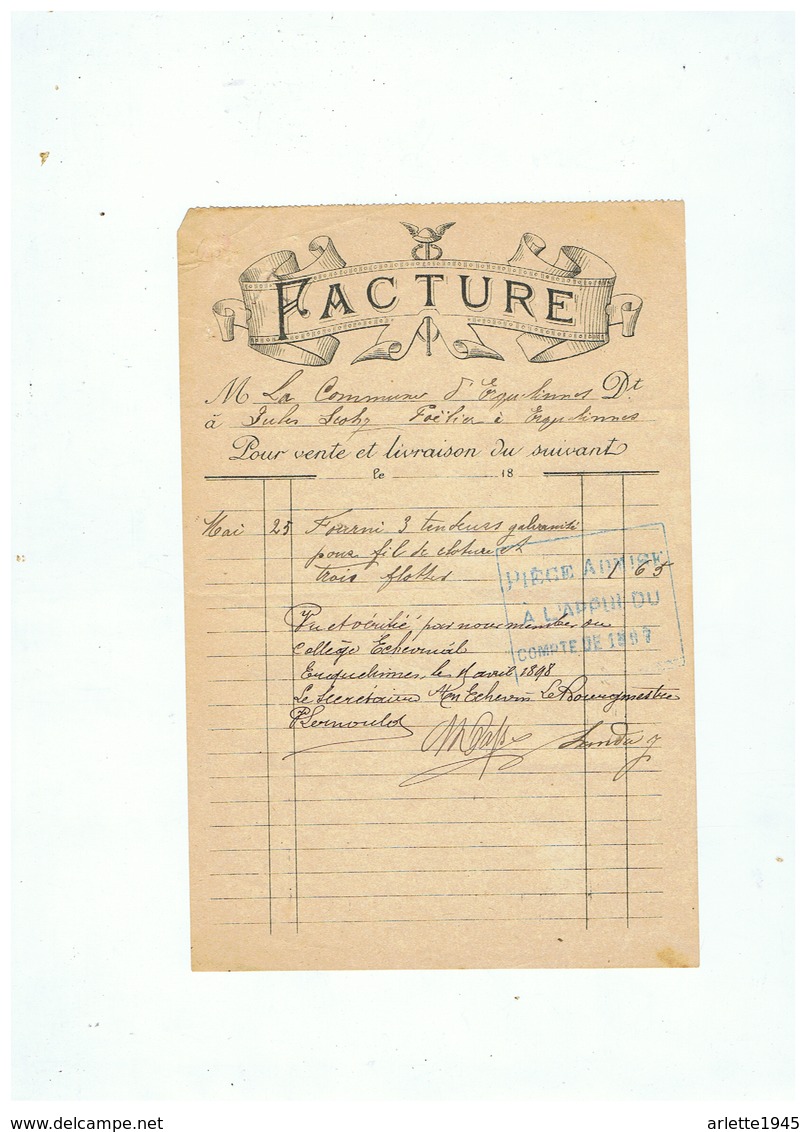 FACTURE
M La Commune d'Erquelinnes Dt
à Jules Poëlier à Erquelinnes
Pour vente et livraison du suivant
le 18
Mai 25 Fourni 3 tendeurs galvanisé
pour fil de cloture et
trois flottes 1 65
PIÈCE ADMISE
À L'APPUI DU
COMPTE DE 1897
Vu et vérifié par nous membres du
Collège Echevinal
Erquelinnes, le avril 1898
Le Secrétaire Echevin Le Bourgmestre
delcampe.net
arlette1945